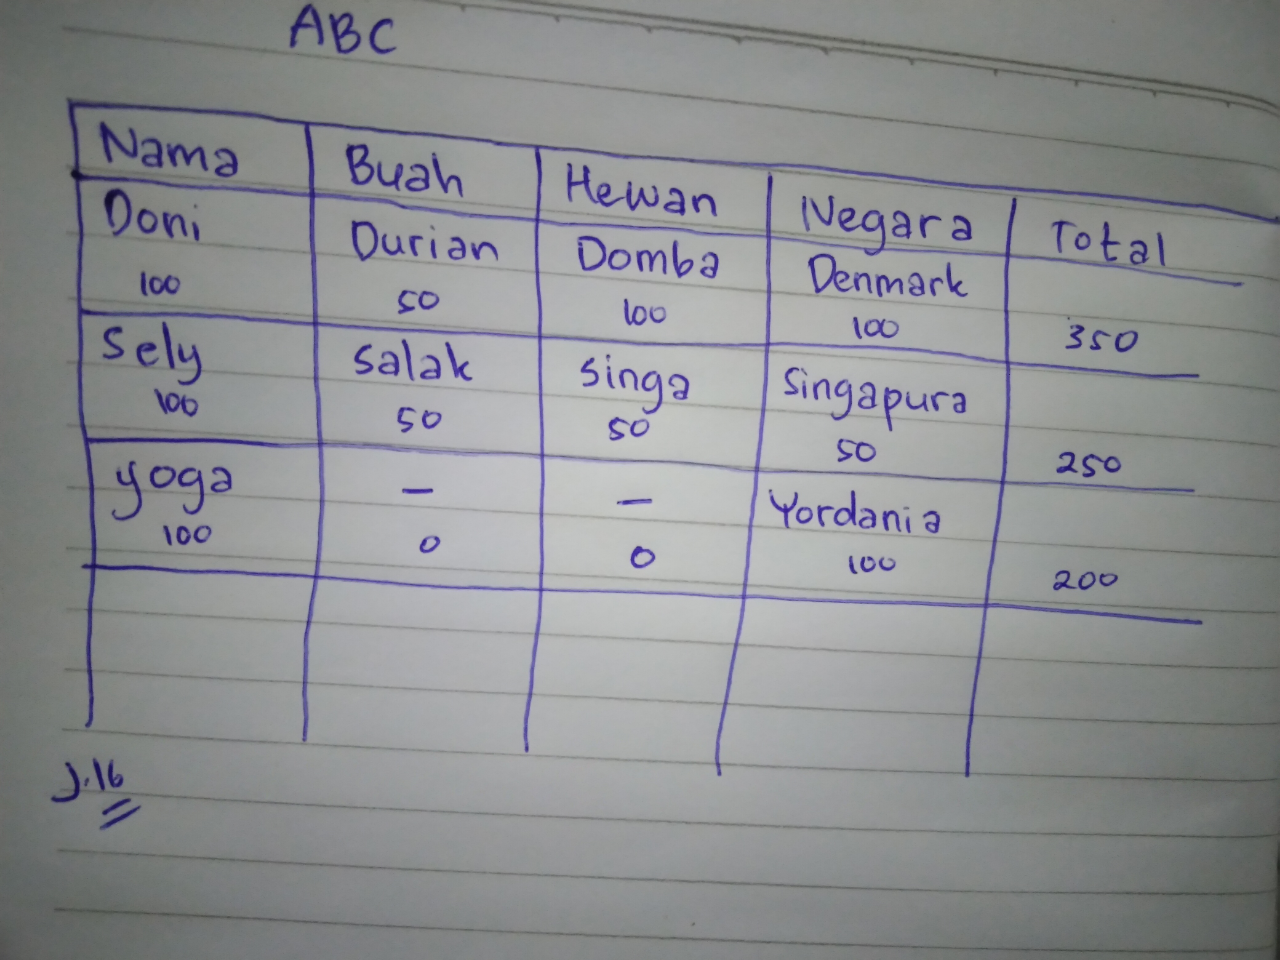 ABC
Nama Buah Hewan Negara Total
Doni Durian Domba Denmark
100 50 100 100 350
Sely Salak Singa Singapura
100 50 50 50 250
yoga — — Yordania
100 0 0 100 200
J.16